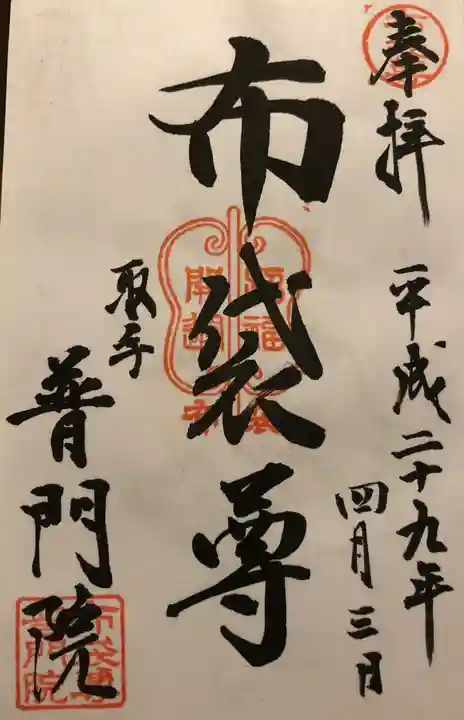 奉拝
平成二十九年
四月三日
布袋尊
取手
普門院